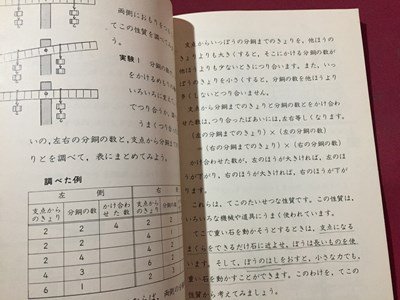 両側におもりをつ
てこの性質を調べてみ
う。
実験1 分銅の数
をかけるめもりの
いろいろに変えて
てつり合うか、調
うまくつり合い
いの、左右の分銅の数と、支点から分銅まで
りとを調べて、表にまとめてみよう。
調べた例
左 側 右
支点から
のきょり 分銅の数 かけ合わ
せた数 支点から
のきょり 分銅の
2 2 4 2 2
2 2
2 4
4 3
6 1
支点からいっぽうの分銅までのきょりを、他ほうの
りよりも大きくすると、そこにかける分銅の数が
他ほうよりも少ないときにつり合います。また、いっ
のきょりを小さくすると、分銅の数を他ほうより
きくしないとつり合いません。
支点から分銅までのきょりと分銅の数とをかけ合わ
せた数は、つり合ったばあいには、左右等しくなります。
(左の分銅までのきょり)×(左の分銅の数)
=(右の分銅までのきょり)×(右の分銅の数)
かけ合わせた数が、左のほうが大きければ、左のほ
うが下がり、右のほうが大きければ、右のほうが下が
ります。
これらは、てこのたいせつな性質です。この性質は、
いろいろな機械や道具にうまく使われています。
てこで重い石を動かそうとするときは、支点になる
まくらをできるだけ石に近よせ、ぼうは長いものを使
います。そして、ぼうのはしをおすと、小さな力でも、
重い石を動かすことができます。このわけを、てこの
性質から考えてみましょう。